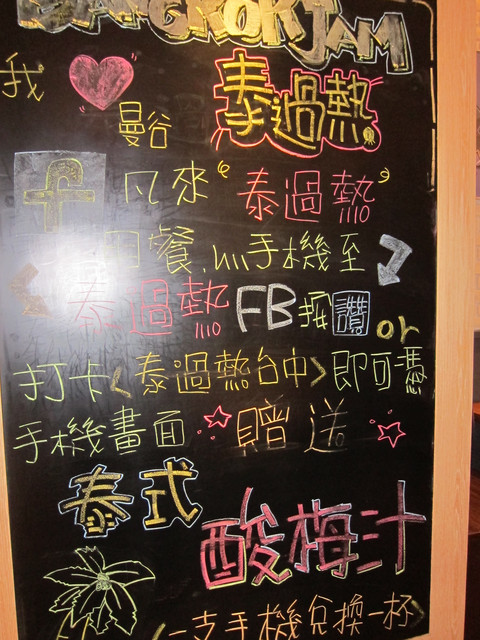 BANGKOK JAM
我
曼谷
泰過熱
f
凡來"泰過熱"
用餐,手機至
泰過熱FB按讚or
打卡<泰過熱台中>即可憑
手機畫面 贈送
泰式
酸梅汁
(一支手機兌換一杯)